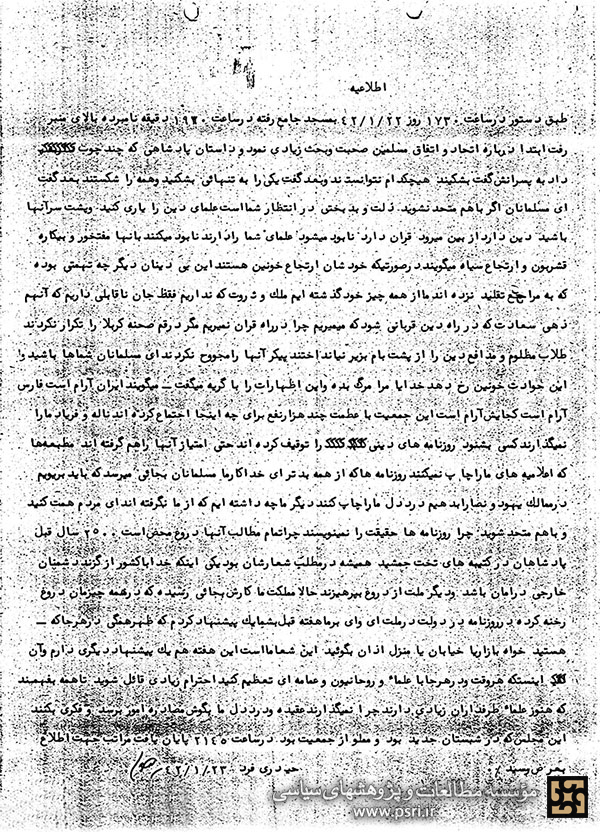 اطلاعیه
طبق دستور در ساعت ۱۷۳۰ روز ۴۲/۱/۲۲ بمسجد جامع رفته در ساعت ۱۹۲۰ دقیقه نامبرده بالای منبر
رفت ابتدا درباره اتحاد و اتفاق مسلمین صحبت وبحث زیادی نمود و داستان پادشاهی که چند چوب
داد به پسرانش گفت بشکنید هیچکدام نتوانستند وبعد گفت یکی را به تنهائی بشکنید وهمه را شکستند بعد گفت
ای مسلمانان اگر باهم متحد نشوید ذلت و بدبختی در انتظار شما است علمای دین را یاری کنید وپشت سر آنها
باشید دین دارد از بین میرود قران دارد نابود میشود علمای شما را دارند نابود میکنند بآنها مفتخور و بیکاره
قشریون و ارتجاع سیاه میگویند در صورتیکه خودشان ارتجاع خونین هستند این بی دینان دیگر چه تهمتی بوده
که به مراجع تقلید نزده اند ما از همه چیز خود گذشته ایم ملك و ثروت که نداریم فقط جان ناقابلی داریم که آنهم
زهی سعادت که در راه دین قربانی شود که میمیریم چرا در راه قران نمیریم مگر در قم صحنه کربلا را تکرار نکردند
طلاب مظلوم و مدافع دین را از پشت بام بزیر نیانداختند پیکر آنها را مجروح نکردند ای مسلمانان شماها باشید و
این حوادث خونین رخ دهد خدایا مرا مرگ بده واین اظهارات را با گریه میگفت ـ میگویند ایران آرام است فارس
آرام است کجایش آرام است این جمعیت با عظمت چند هزار نفع برای چه اینجا اجتماع کرده اند ناله و فریاد ما را
نمیگذارند کسی بشنود روزنامه های دینی را توقیف کرده اند حتی امتیاز آنها را هم گرفته اند مطبعه ها
که اعلامیه های ما را چاپ نمیکنند روزنامه ها که از همه بدتر ای خدا کار ما مسلمانان بجائی میرسد که باید برویم
در ممالك یهود و نصارا بدهیم درد دل ما را چاپ کنند دیگر ما چه داشته ایم که از ما نگرفته اند ای مردم همت کنید
و باهم متحد شوید چرا روزنامه ها حقیقت را نمینویسند چرا تمام مطالب آنها دروغ محض است ۲۵۰۰ سال قبل
پادشاهان در کتیبه های تخت جمشید همیشه در مطلب شعارشان بود یکی اینکه خدایا کشور از گزند دشمنان
خارجی در امان باشد ودیگر ملت از دروغ بپرهیزند حالا مملکت ما کارش بجائی رسیده که در همه چیزمان دروغ
رخنه کرده در روزنامه در دولت در ملت ای وای بر ما هفته قبل بشما یك پیشنهاد کردم که ظهر هنگی در هر جا که ـ
هستید خواه بازار یا خیابان یا منزل اذان بگوئید این شعار ما است این هفته هم یك پیشنهاد دیگری دارم وآن
اینستکه هر وقت ودر هر جا با علماء و روحانیون و عمامه ای تعظیم کنید احترام زیادی قائل شوید تا همه بفهمند
که هنوز علماء طرفداران زیادی دارند چرا نمیگذارند عقیده ودرد دل ما بگوش مصادره امور برسد و فکری بکنند
این مجلس که در شبستان جدید بود و مملو از جمعیت بود در ساعت ۲۱۴۵ پایان یافت مراتب جهت اطلاع
بعرض رسید
حیدری فرد ۴۲/۱/۲۳
مؤسسه مطالعات و پژوهشهای سیاسی
www.psri.ir